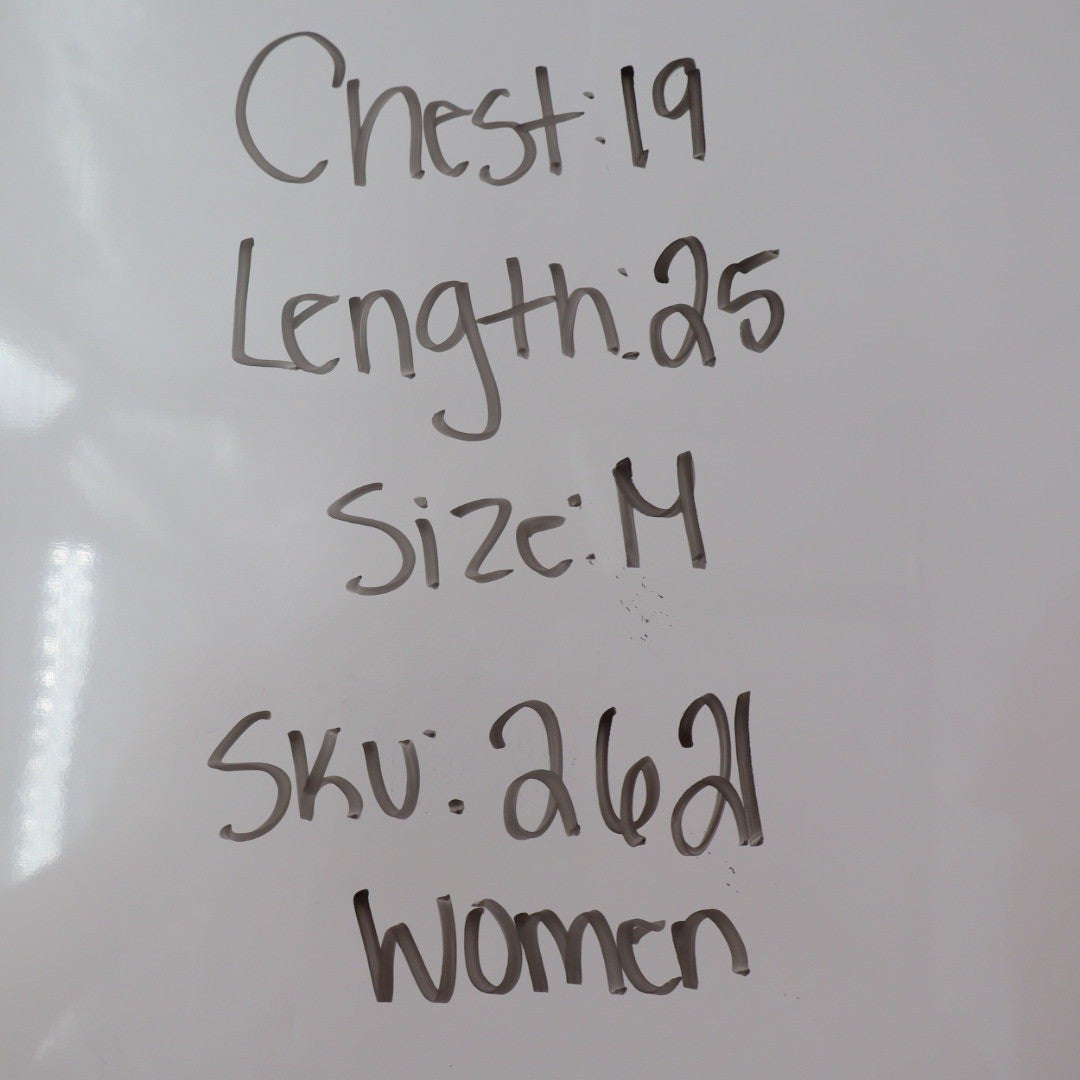 Chest:19
Length:25
Size:M
SKU: 2621
Women